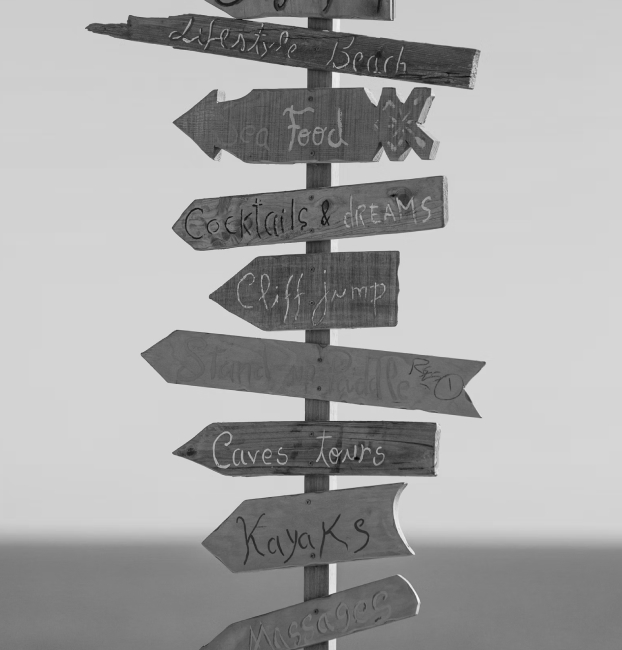 Lifestyle Beach
Sea Food
Cocktails & dREAMS
Cliff jump
Stand up Paddle
Caves tours
Kayaks
Massages